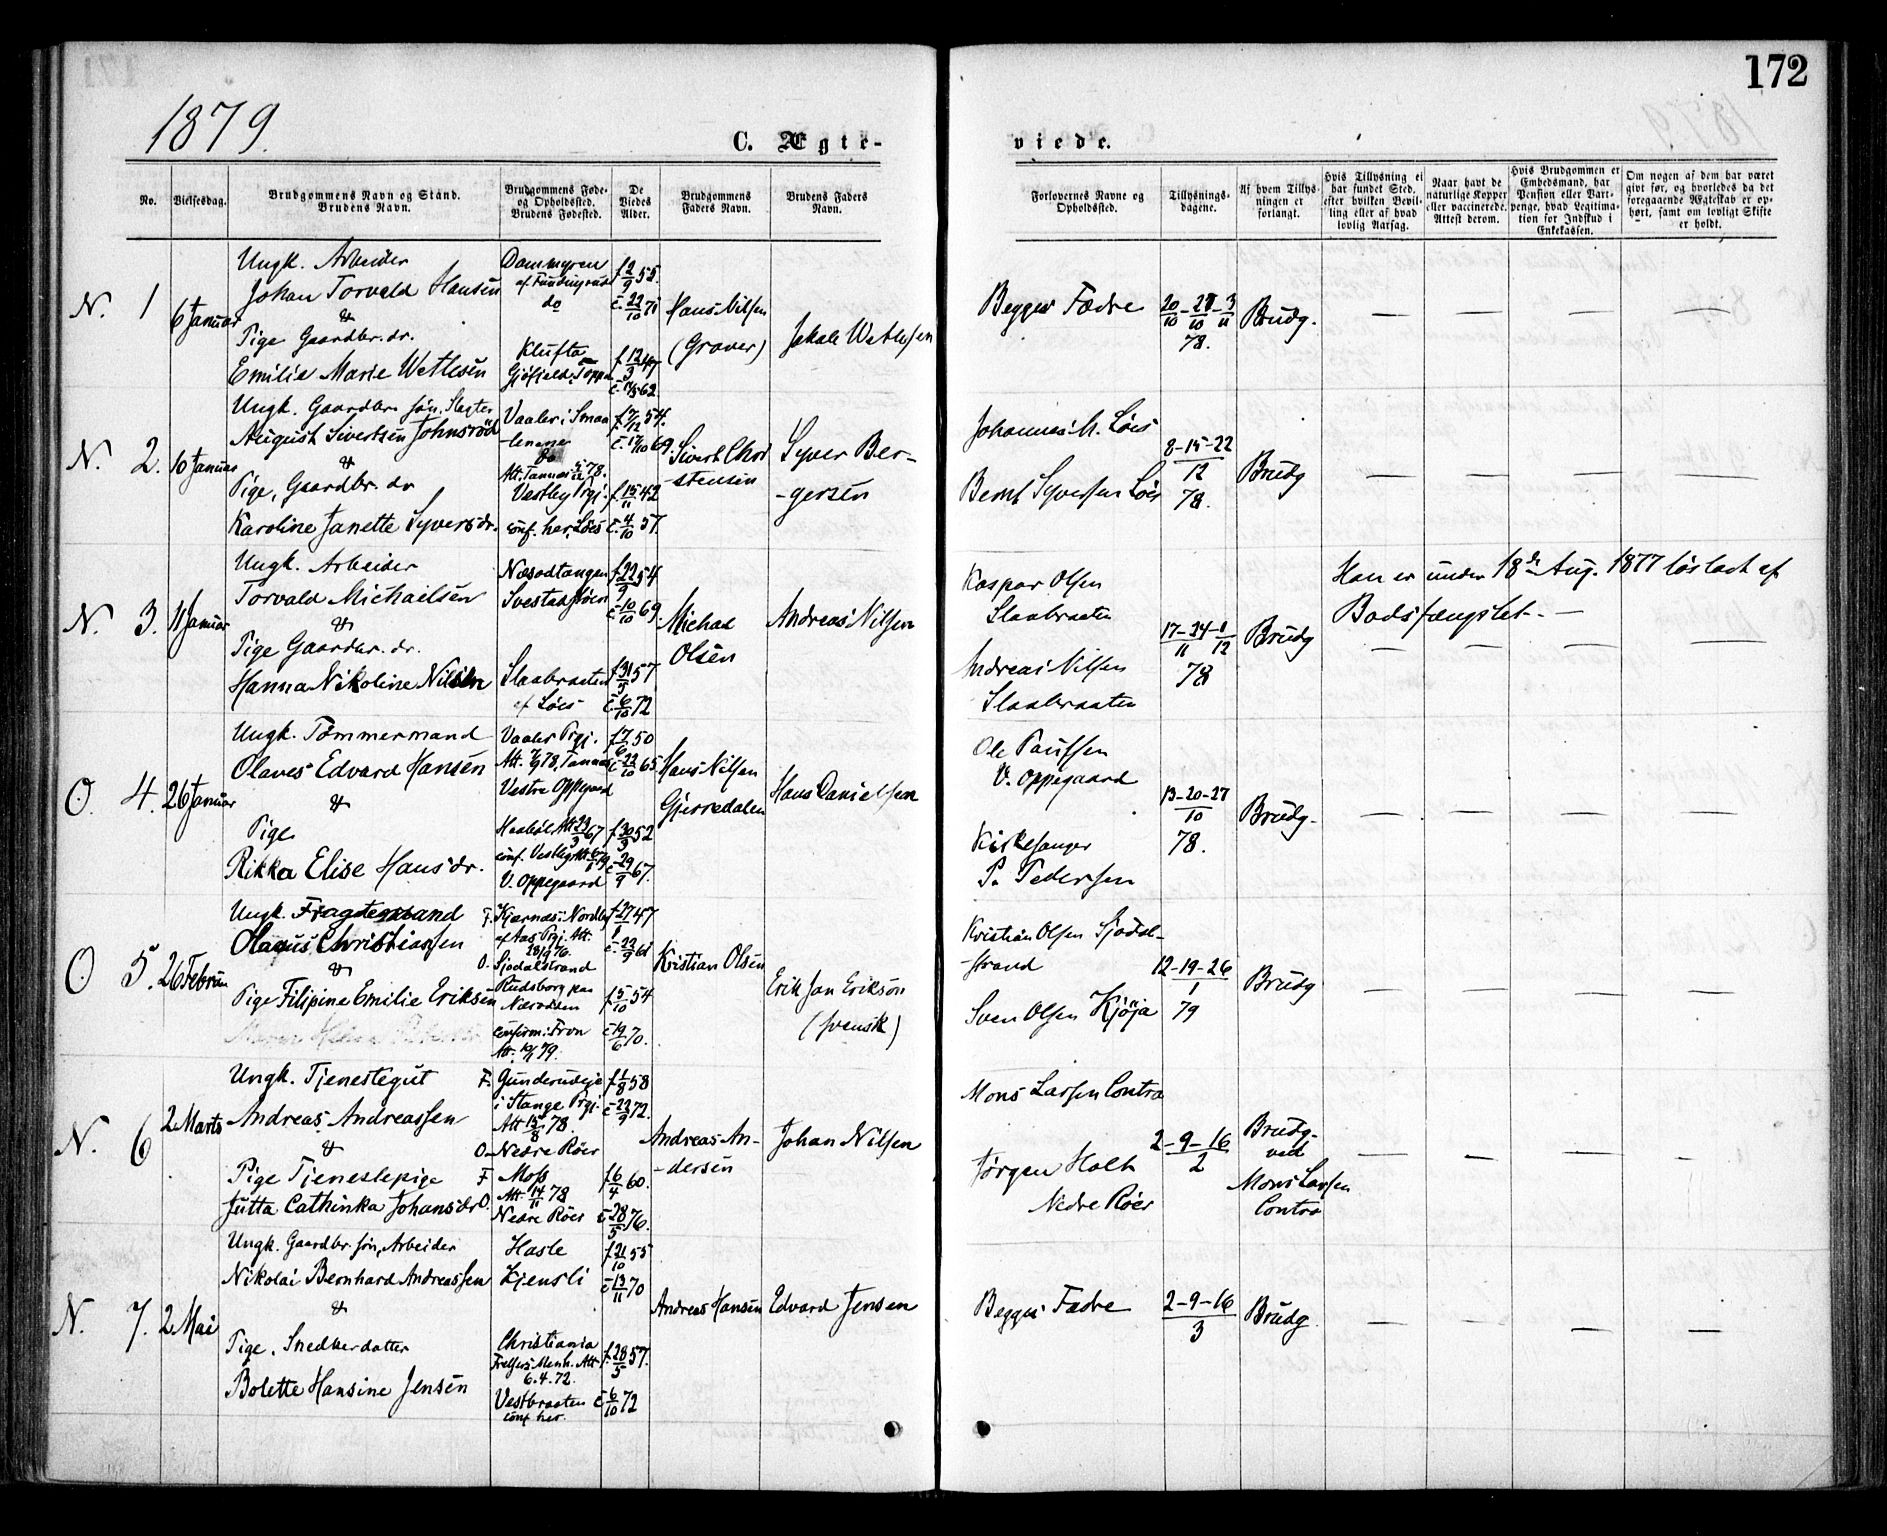 172
1879.
C. Ægte-
viede.
No.
Vielsesdag.
Brudgommens Navn og Stand.
Brudens Navn.
Brudgommens Føde-
og Opholdssted.
Brudens Fødested.
De
Viedes
Alder.
Brudgommens
Faders Navn.
Brudens Faders
Navn.
Forlovernes Navne og
Opholdssted.
Tillysnings-
dagene.
Af hvem Tillys-
ningen er
forlangt.
Hvis Tillysning ei
har fundet Sted,
efter hvilken Bevil-
ling eller af hvad
lovlig Aarsag.
Naar havt de
naturlige Kopper
eller vaccinerede.
Attest derom.
Hvis Brudgommen er
Embedsmand, har
Pension eller Vart-
penge, hvad Legitima-
tion for Indskud i
Enkekassen.
Om nogen af dem har været
givt før, og hvorledes da det
foregaaende Ægteskab er op-
hørt, samt om lovligt Skifte
er holdt.
N. 1
6 Januar
Ungk. Arbeider
Johan Torvald Hansen
&
Pige Gaardbr. dr.
Emilie Marie Wetlesen
do
Klufta
f. 2/9 55.
c. 22/10 71
f. 12/3 47
Hans Nilsen
(Graver)
Jakob Wetlesen
Begges Fædre
20/10 - 27/10 - 3/11
78.
Brudg.
— — — —
N. 2.
10 Januar
Ungk. Gaardbr. søn, Slagter
August Sivertsen Johnsrød
&
Pige, Gaardbr. dr
Karoline Janette Syversdr.
Vaaler i Smaa-
-lenene
do
Vestby Prgj.
conf. her, Løes
f. 17/12 54.
c. 17/10 69.
f. 15/11 42
c. 4/10 57.
Sivert Chri
-stensen
Syver Ber-
-gersen
Johannes M. Løes
Bernt Syversen Løes
8-15-22
12
78.
Brudg
— — — —
N. 3.
11 Januar
Ungk. Arbeider
Torvald Michaelsen
&
Pige Gaardbr. dr.
Hanna Nikoline Nilsen
Næsodtangen
Slaabraaten
af Løes
f. 22/9 54
c. 10/10 69.
f. 31/5 57
c. 6/10 72
Michael
Olsen
Andreas Nilsen
Kaspar Olsen
Slaabraaten
Andreas Nilsen
Slaabraaten
17-24/11 - 1/12
78
Brudg
Han er under 18de Aug. 1877 løsladt af
Bodsfængslet. —
— — — —
O. 4.
26 Januar
Ungk. Tømmermand
Olaves Edvard Hansen
&
Pige
Rikka Elise Hansdr.
Vaaler Prgj.
Vestre Oppegaard
V. Oppegaard
f. 7/6 50
c. 22/10 65
f. 30/3 52
c. 29/9 67.
Hans Nilsen
Gjerredalen
Hans Danielsen
Ole Paulsen
V. Oppegaard
Kirkesanger
P. Pedersen
13-20-27
10
78.
Brudg.
— — — —
O. 5.
26 Februar
Ungk. Fragtemand
Olaus Christiansen
&
Pige Filipine Emilie Eriksen
F. Kjærnæs i Nordby
af Aas Prgj. Att.
28/9 76.
O. Sjodalstrand
Rudsborg paa
Næsodden
confirm: Fron
Att. 10/1 79.
f. 27/1 47
c. 22/9 61
f. 5/10 54
c. 19/6 70.
Kristian Olsen
Erik Jan Erikson
(svensk)
Kristian Olsen Sjodal-
-strand
Sven Olsen Kjøja
12-19-26
1
79
Brudg
— — — —
N. 6
2 Marts
Ungk. Tjenestegut
Andreas Andreassen
&
Pige Tjenestepige
Jutta Cathinka Johansdr
F. Gunderudeje
i Stange Prgj.
Att 15/8 78.
O. Nedre Røer
F Moss
Att. 14/11 78
O. Nedre Røer
f. 1/8 58
c. 22/9 72.
f. 6/4 60.
c. 28/5 76.
Andreas An-
-dersen
Johan Nilsen
Mons Larsen Contra
Jørgen Holt
Nedre Røer
2-9-16
2
Brudg.
ved
Mons Larsen
Contra
— — — —
N. 7.
2 Mai
Ungk. Gaardbr. søn, Arbeider
Nikolai Bernhard Andreassen
&
Pige. Snedkerdatter
Bolette Hansine Jensen
Hasle
Ljensli
Christiania
Frelsers Menh. Att
6.4.72.
Vestbraaten
conf her.
f. 21/10 55
c. 13/11 70
f. 28/5 57.
c. 6/10 72
Andreas Hansen
Edvard Jensen
Begges Fædre
2-9-16
3
Brudg
— — — —